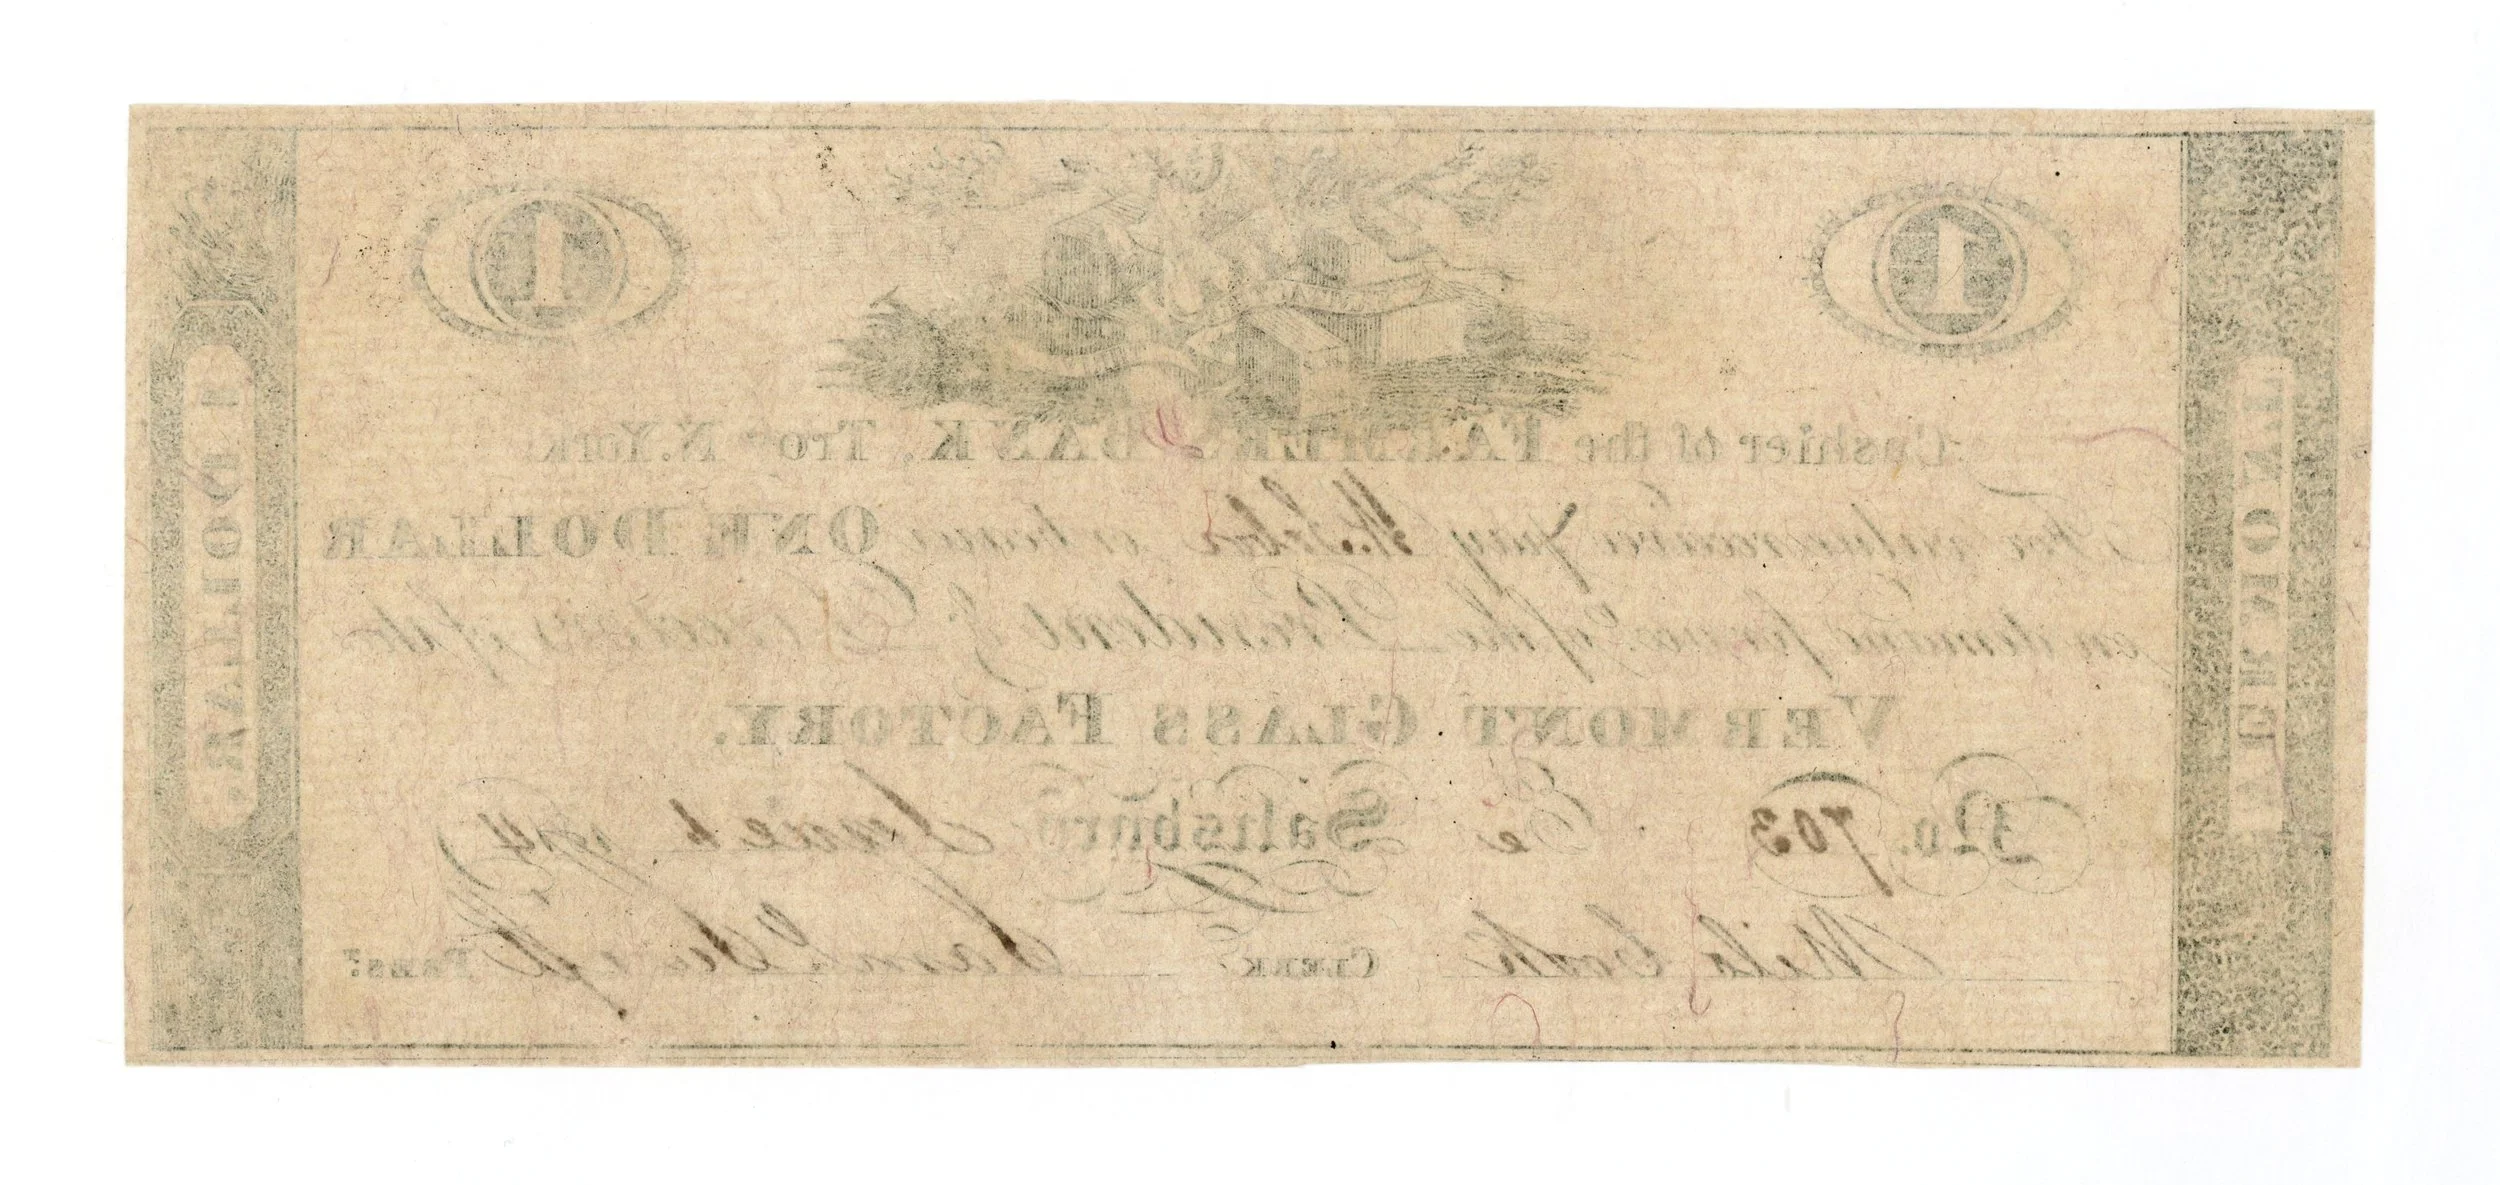 VERMONT
1
1
1 DOLLAR.
Cashier of the FARMERS BANK, Troy N. York
For value receiv'd pay H. or bearer ONE DOLLAR
on demand of the President & Directors of the
VERMONT GLASS FACTORY.
No. 703 Salisbury June 1814
Mile Cook CLERK. Sam PRES.